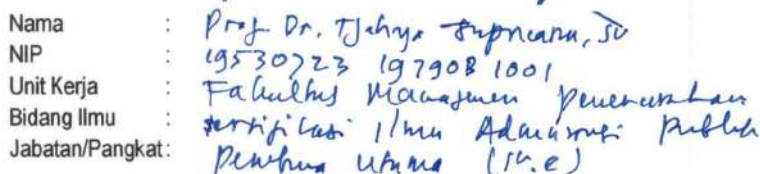 Nama : Prof. Dr. Tjahya Supriatna, SU
NIP : 19530723 197903 1001
Unit Kerja : Fakultas Manajemen Pemerintahan
Bidang Ilmu : sertifikasi Ilmu Administrasi Publik
Jabatan/Pangkat : Pembina Utama (IV.e)